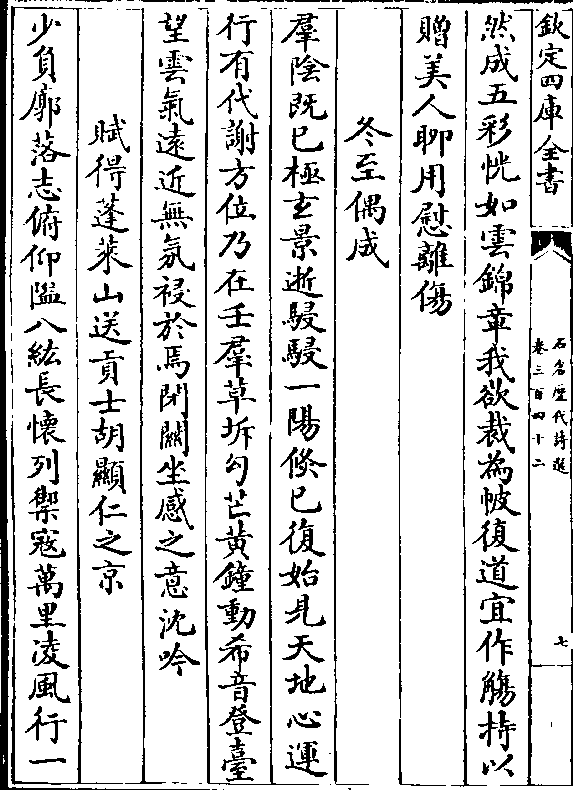 欽定四庫全書
石倉歷代詩選
卷三百四十二
七
然成五彩恍如雲錦章我欲裁為帔復道宜作觴持以
贈美人聊用慰離傷
冬至偶成
羣陰既已極玄景逝駸駸一陽倐已復始見天地心運
行有代謝方位乃在壬羣草坼勾芒黄鐘動希音登臺
望雲氣遠近無氛祲於焉閉關坐感之意沈吟
賦得蓬萊山送貢士胡顯仁之京
少負廓落志俯仰隘八紘長懷列禦寇萬里凌風行一